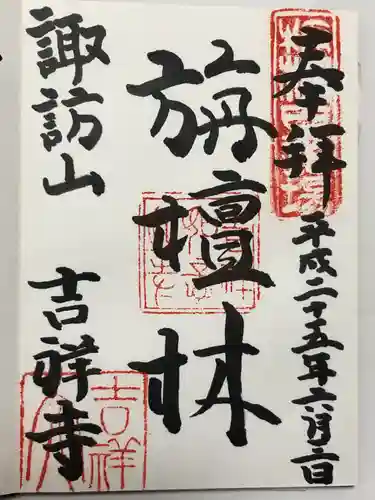 奉拝
平成二十五年六月二日
旃壇林
諏訪山
吉祥寺
吉祥